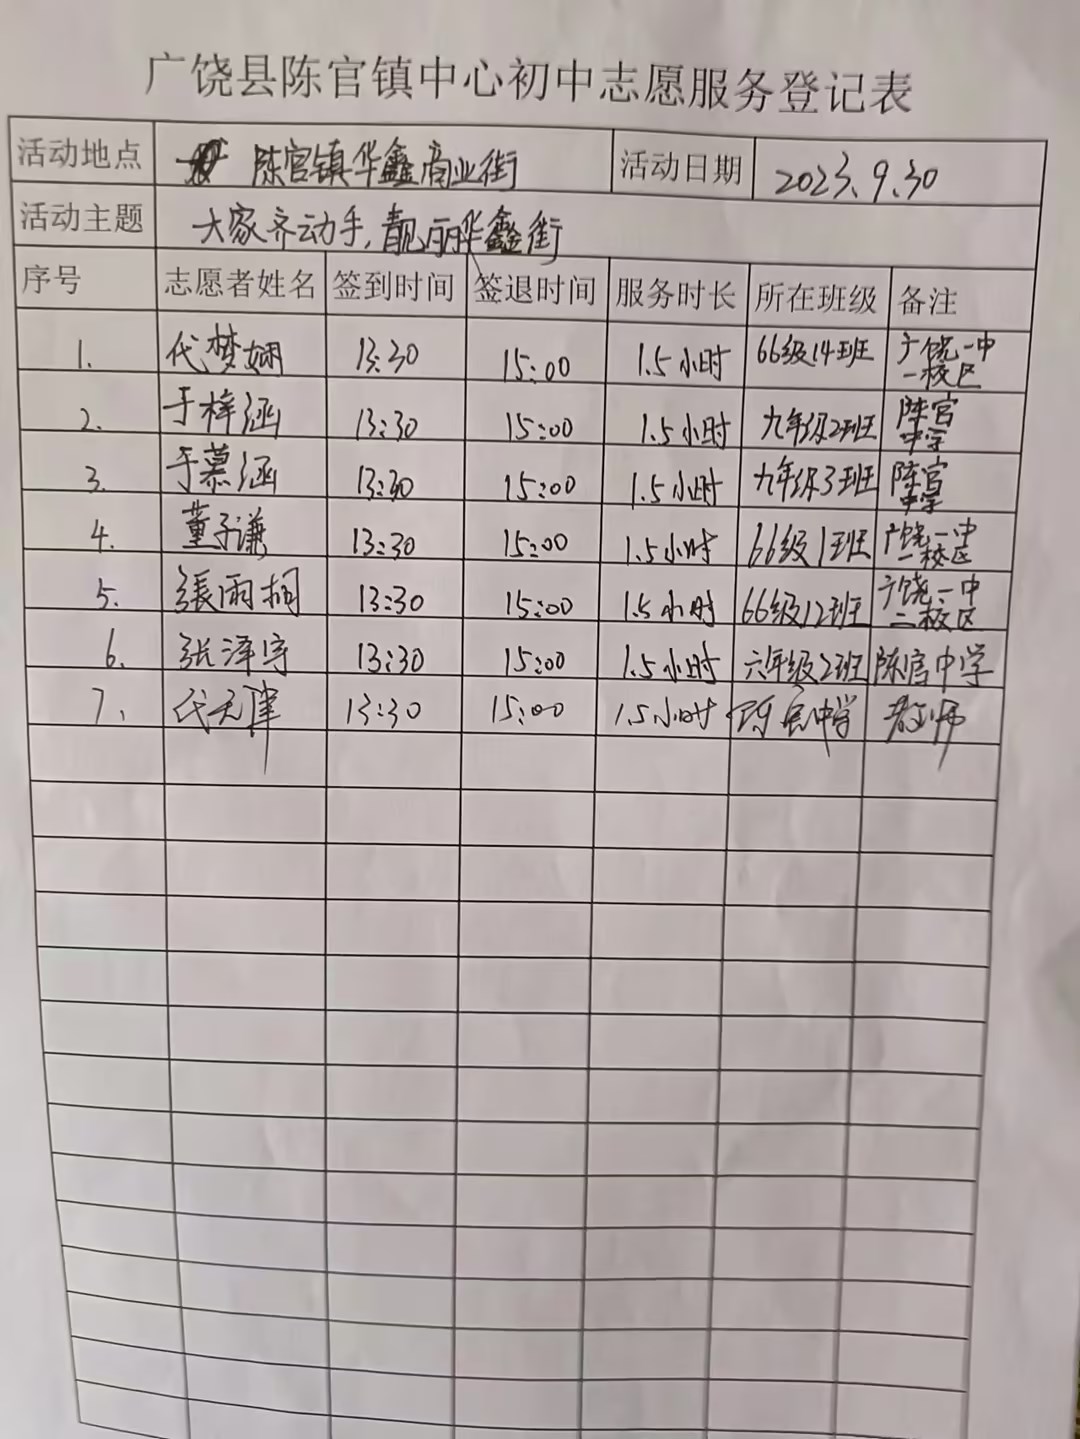 广饶县陈官镇中心初中志愿服务登记表
活动地点 陈官镇华鑫商业街 活动日期 2023.9.30
活动主题 大家齐动手,靓丽华鑫街
序号 志愿者姓名 签到时间 签退时间 服务时长 所在班级 备注
1. 代梦娴 13:30 15:00 1.5小时 66级14班 广饶一中一校区
2. 于梓涵 13:30 15:00 1.5小时 九年级2班 陈官中学
3. 于慕涵 13:30 15:00 1.5小时 九年级3班 陈官中学
4. 董子谦 13:30 15:00 1.5小时 66级1班 广饶一中一校区
5. 張雨桐 13:30 15:00 1.5小时 66级12班 广饶一中二校区
6. 张泽宇 13:30 15:00 1.5小时 六年级2班 陈官中学
7. 代天津 13:30 15:00 1.5小时 陈官中学 教师